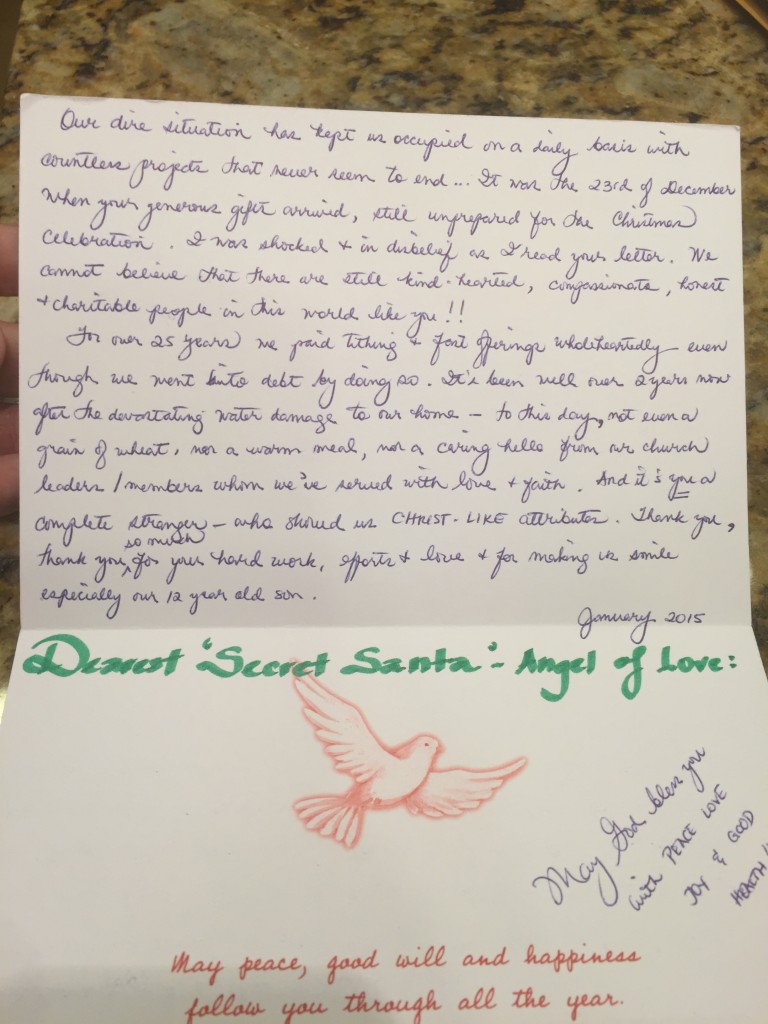 Our dire situation has kept us occupied on a daily basis with
countless projects that never seem to end... It was the 23rd of December
when your generous gifts arrived, still unprepared for the Christmas
Celebration. I was shocked & in disbelief as I read your letter. We
cannot believe that there are still kind-hearted, compassionate, honest
& charitable people in this world like you!!
For over 25 years we paid tithing & fast offerings wholeheartedly even
though we went into debt by doing so. It's been well over 2 years now
after the devastating water damage to our home – to this day, not even a
grain of wheat, nor a warm meal, nor a caring hello from our church
leaders/members whom we've served with love & faith. And it's you a
complete stranger – who showed us CHRIST-LIKE attributes. Thank you,
thank you so much for your hard work, efforts & love & for making us smile
especially our 12 year old son.
January 2015
Dearest 'Secret Santa' - Angel of Love:
May God bless you
with PEACE LOVE
JOY & GOOD
HEALTH
May peace, good will and happiness
follow you through all the year.